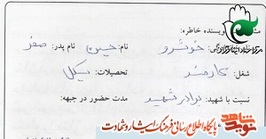 نویسنده خاطره:
نام: حسین نام پدر: صفر
شغل: کارمند تحصیلات: سیکل
نسبت با شهید: برادر شهید مدت حضور در جبهه:
نوید شاهد
پایگاه اطلاع رسانی فرهنگ ایثار و شهادت